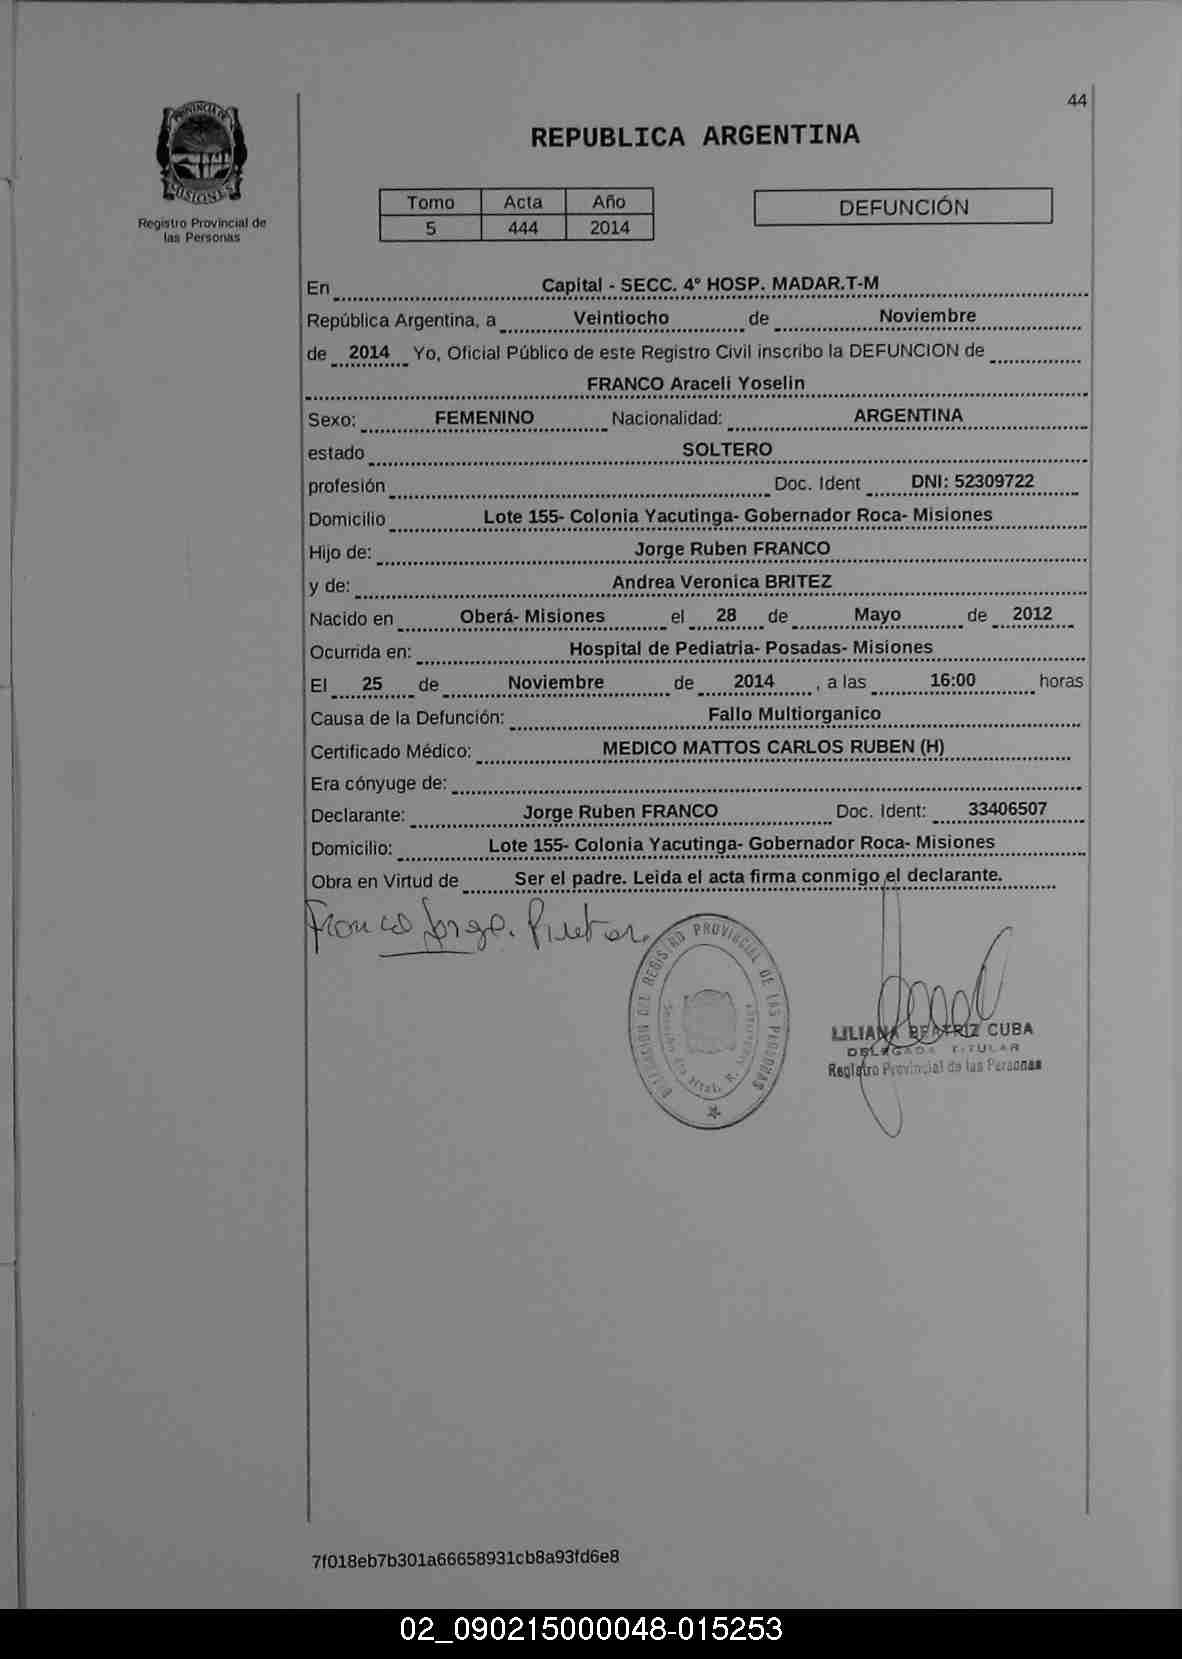 44
PROVINCIA DE
MISIONES
Registro Provincial de
las Personas
REPUBLICA ARGENTINA
Tomo Acta Año
5 444 2014
DEFUNCIÓN
En Capital - SECC. 4º HOSP. MADAR.T-M
República Argentina, a Veintiocho de Noviembre
de 2014 Yo, Oficial Público de este Registro Civil inscribo la DEFUNCION de
FRANCO Araceli Yoselin
Sexo: FEMENINO Nacionalidad: ARGENTINA
estado SOLTERO
profesión Doc. Ident DNI: 52309722
Domicilio Lote 155- Colonia Yacutinga- Gobernador Roca- Misiones
Hijo de: Jorge Ruben FRANCO
y de: Andrea Veronica BRITEZ
Nacido en Oberá- Misiones el 28 de Mayo de 2012
Ocurrida en: Hospital de Pediatria- Posadas- Misiones
El 25 de Noviembre de 2014 , a las 16:00 horas
Causa de la Defunción: Fallo Multiorganico
Certificado Médico: MEDICO MATTOS CARLOS RUBEN (H)
Era cónyuge de:
Declarante: Jorge Ruben FRANCO Doc. Ident: 33406507
Domicilio: Lote 155- Colonia Yacutinga- Gobernador Roca- Misiones
Obra en Virtud de Ser el padre. Leida el acta firma conmigo el declarante.
Franco Jorge.
DEL REGISTRO PROVINCIAL DE LAS PERSONAS
LILIANA BEATRIZ CUBA
DELEGADA TITULAR
Registro Provincial de las Personas
7f018eb7b301a66658931cb8a93fd6e8
02_090215000048-015253